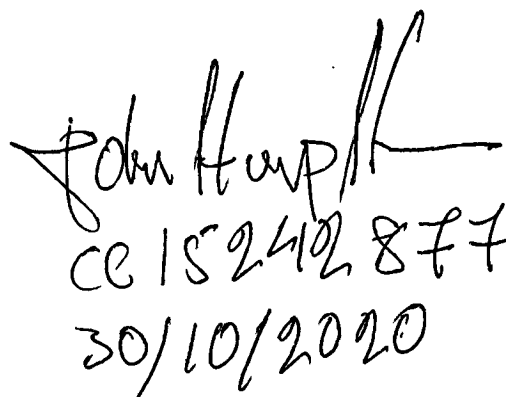 John
CC 152412877
30/10/2020